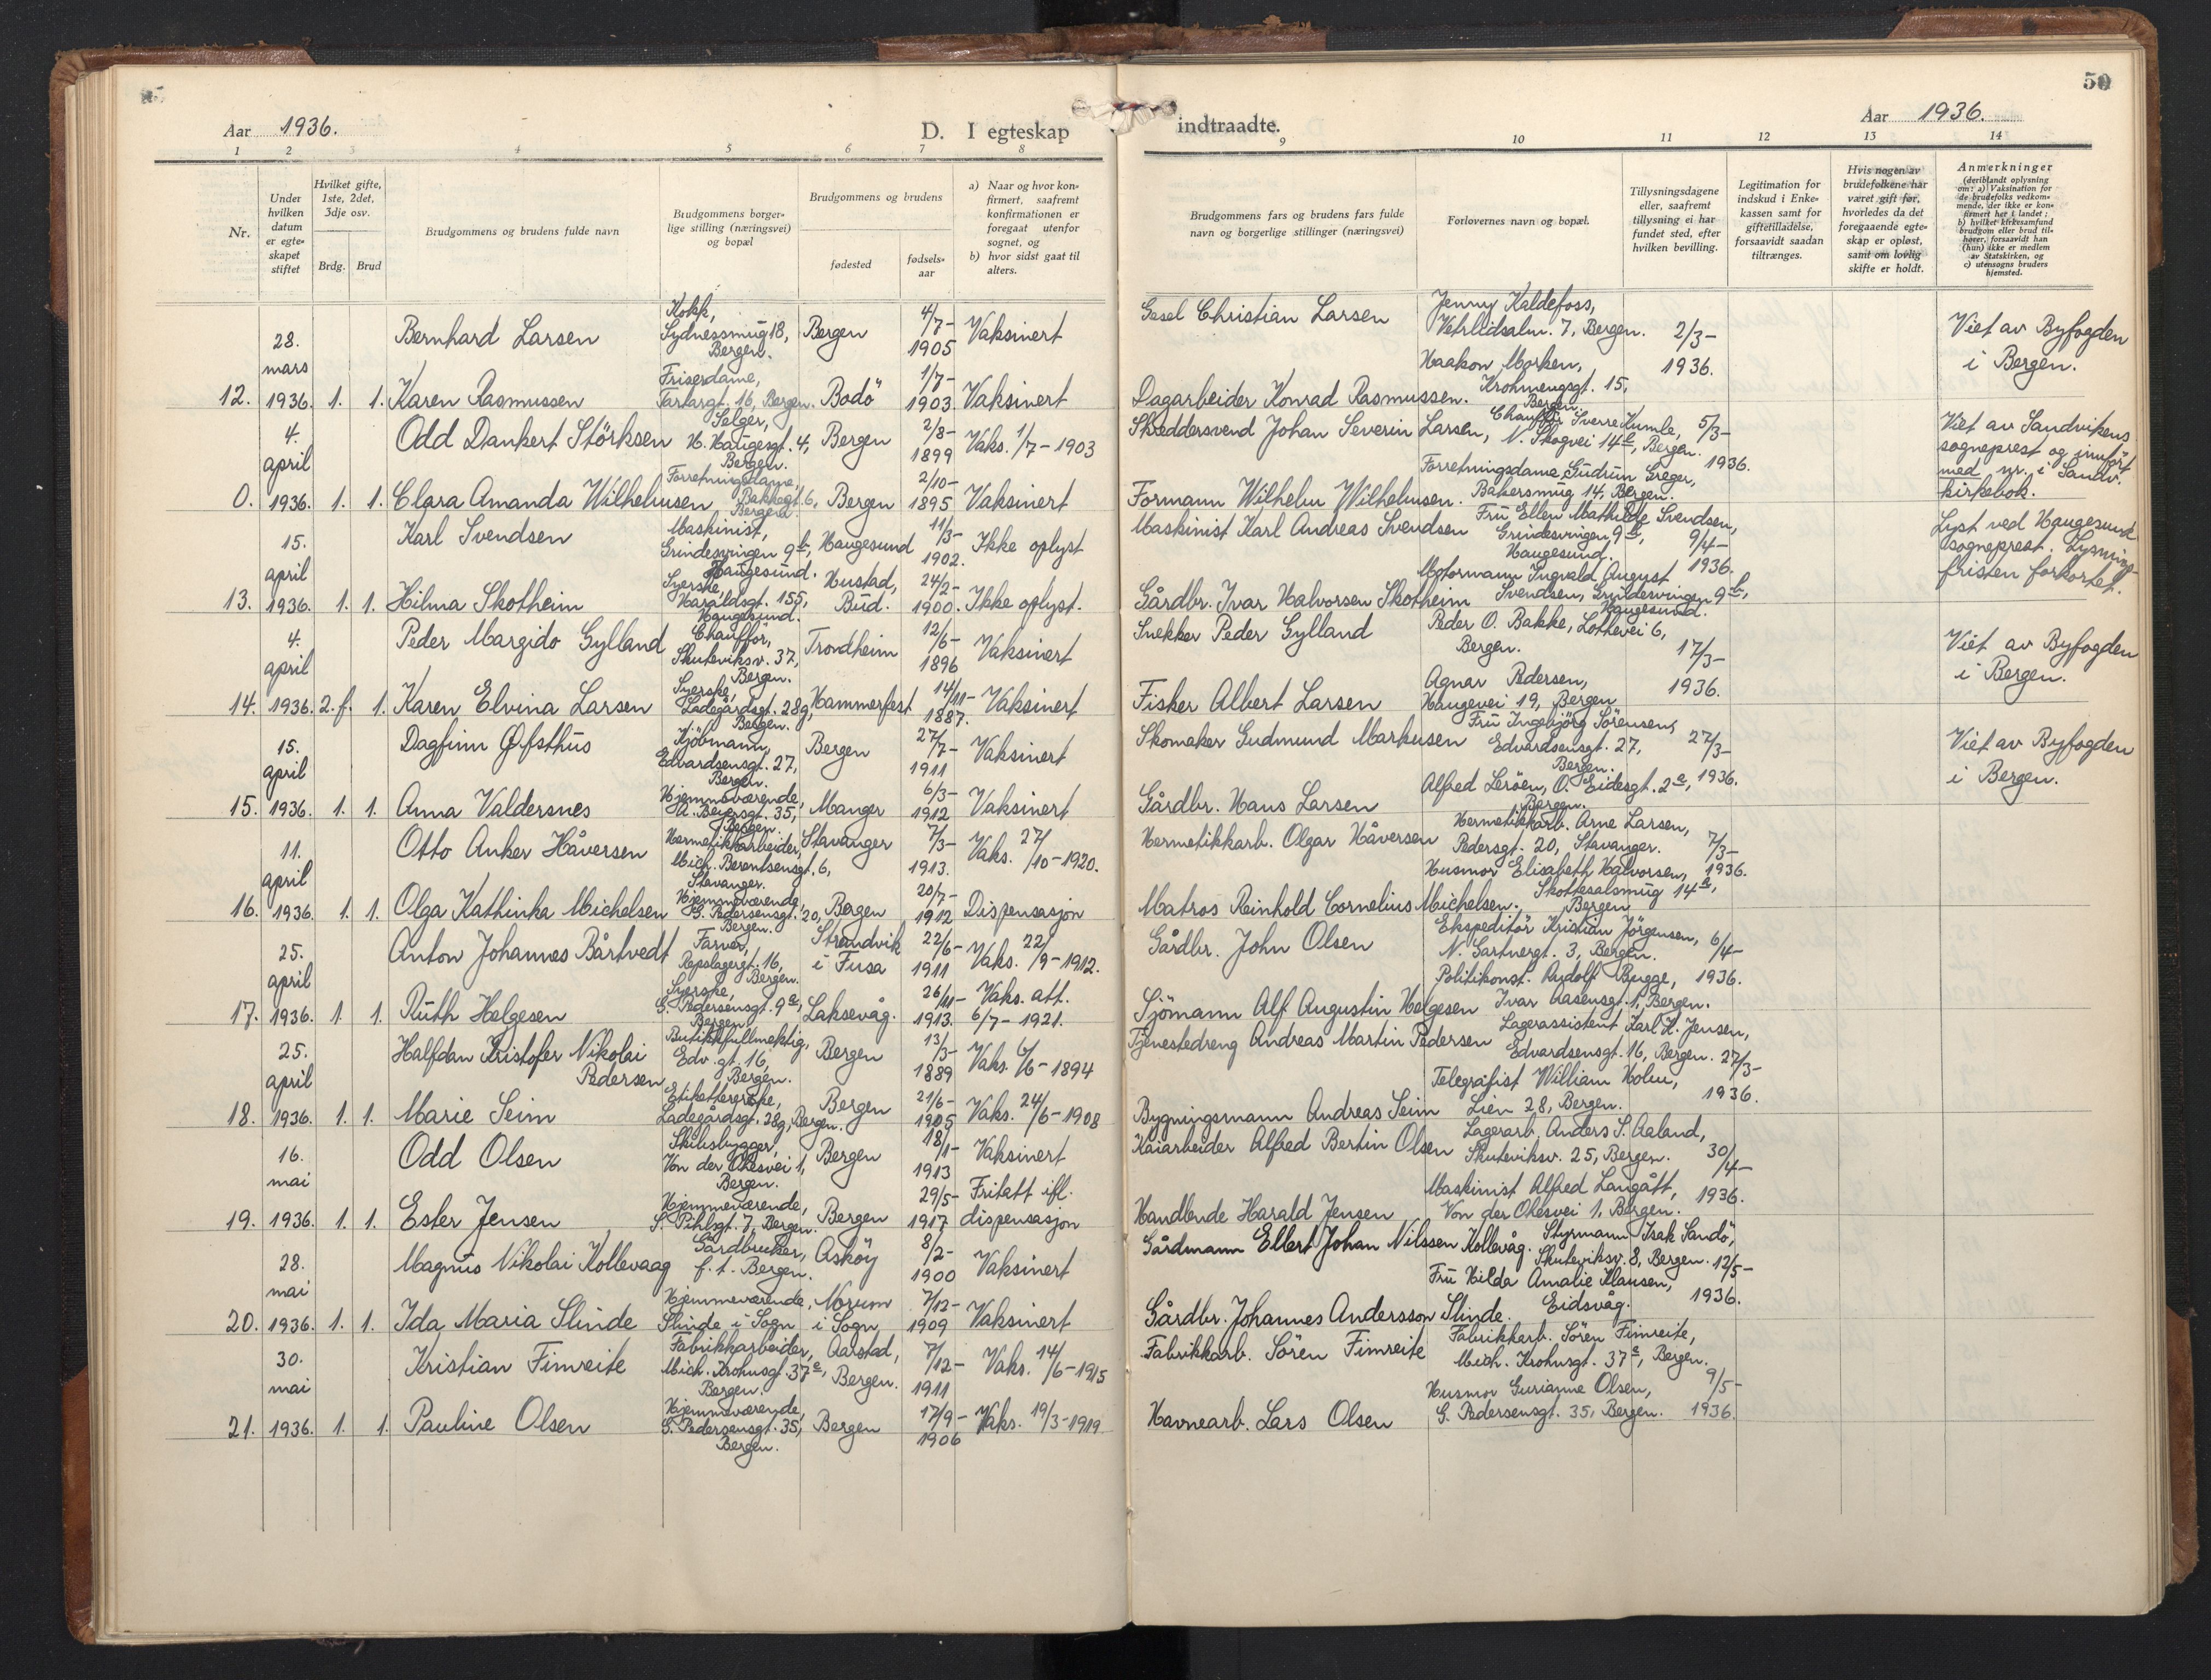 50
Aar 1936.
D. I egteskap
indtraadte.
Aar 1936.
1 2 3 4 5 6 7 8
9 10 11 12 13 14
Nr.
Under hvilken datum er egteskapet stiftet
Hvilket gifte, 1ste, 2det, 3dje osv.
Brdg. Brud
Brudgommens og brudens fulde navn
Brudgommens borgerlige stilling (næringsvei) og bopæl
Brudgommens og brudens
fødested
fødselsaar
a) Naar og hvor konfirmert, saafremt konfirmationen er foregaat utenfor sognet, og
b) hvor sidst gaat til alters.
Brudgommens fars og brudens fars fulde navn og borgerlige stillinger (næringsvei)
Forlovernes navn og bopæl.
Tillysningsdagene eller, saafremt tillysning ei har fundet sted, efter hvilken bevilling.
Legitimation for indskud i Enkekassen samt for giftetilladelse, forsaavidt saadan tiltrænges.
Hvis nogen av brudefolkene har været gift før, hvorledes da det foregaaende egteskap er opløst, samt om lovlig skifte er holdt.
Anmerkninger
(deriblandt oplysning om: a) Vaksination for de brudefolks vedkommende, der ikke er konfirmert her i landet; b) hvilket kirkesamfund brudgom eller brud tilhører, forsaavidt han (hun) ikke er medlem av Statskirken, og c) utensogns bruders hjemsted.
12. 28. mars 1936. 1. 1.
Bernhard Larsen Kokk, Sydnessmug 18, Bergen. Bergen 4/7-1905 Vaksinert
Christian Larsen Jenny Kaldefoss, 7, Bergen. 2/3-1936. Viet av Byfogden i Bergen.
Karen Rasmussen Friserdame, Tartargt. 16, Bergen. Bodö 1/7-1903 Vaksinert
Dagarbeider Konrad Rasmussen. Haakon Morken, Krohnengsgt. 15, Bergen.
0. 4. april 1936. 1. 1.
Odd Dankert Störksen Selger, H. Haugesgt. 4, Bergen. Bergen 2/8-1899 Vaks. 1/7-1903
Skreddersvend Johan Severin Larsen, Chaufför Sverre Kumle, N. Skogvei 14, Bergen. 5/3-1936. Viet av Sandvikens sogneprest og innfört med nr. i Sandv. kirkebok.
Clara Amanda Wilhelmsen Forretningsdame, Bakkegt. 6, Bergen. Bergen 2/10-1895 Vaksinert
Formann Wilhelm Wilhelmsen. Forretningsdame Gudrun Greger, Bakersmug 14, Bergen.
13. 15. april 1936. 1. 1.
Karl Svendsen Maskinist, Grindesvingen 9b, Haugesund. Haugesund 11/3-1902. Ikke oplyst
Maskinist Karl Andreas Svendsen Fru Ellen Mathilde Svendsen, Grindesvingen 9b, Haugesund. 9/4-1936. Lyst ved Haugesund sogneprest. Lysningsfristen forkortet.
Hilma Skotheim Syerske, Haraldsgt. 155, Haugesund. Hustad, Bud. 24/2-1900. Ikke oplyst.
Gårdbr. Ivar Halvorsen Skotheim Motormann Ingvald August Svendsen, Grindesvingen 9b, Haugesund.
14. 4. april 1936. 2. f. 1.
Peder Margido Gylland Chaufför, Skuteviksv. 37, Bergen. Trondheim 12/6-1896 Vaksinert
Snekker Peder Gylland Peder O. Bakke, Lothevei 6, Bergen. 17/3-1936. Viet av Byfogden i Bergen.
Karen Elvina Larsen Syerske, Ladegårdsgt. 28g, Bergen. Hammerfest 14/11-1887. Vaksinert
Fisker Albert Larsen Agnar Pedersen, Haugevei 19, Bergen
15. 15. april 1936. 1. 1.
Dagfinn Øfsthus Kjöbmann, Edvardsensgt. 27, Bergen. Bergen 27/7-1911 Vaksinert
Skomaker Gudmund Markusen Fru Ingebjörg Sörensen, Edvardsensgt. 27, Bergen. 27/3-1936. Viet av Byfogden i Bergen.
Anna Valdersnes Hjemmeværende, A. Beyersgt. 35, Bergen. Manger 6/3-1912 Vaksinert
Gårdbr. Hans Larsen Alfred Leröen, O. Eidesgt. 2a, Bergen.
16. 11. april 1936. 1. 1.
Otto Anker Håversen Hermetikkarbeider, Mich. Berentsensgt. 6, Stavanger. Stavanger 7/3-1913. Vaks. 27/10-1920.
Hermetikkarb. Olgar Håversen Hermetikkarb. Arne Larsen, Pedersgt. 20, Stavanger. 7/3-1936.
Olga Kathinka Michelsen Hjemmeværende, G. Pedersensgt. 20, Bergen. Bergen 20/7-1912 Dispensasjon
Matros Reinhold Cornelius Michelsen. Husmor Elisabeth Halvorsen, Skottesalsmug 14a, Bergen
17. 25. april 1936. 1. 1.
Anton Johannes Bårtvedt Farver, Repslagergt. 16, Bergen. Strandvik i Fusa 22/6-1911 Vaks. 22/9-1912.
Gårdbr. John Olsen Ekspeditör Kristian Jörgensen, N. Gartnergt. 3, Bergen. 6/4-1936.
Ruth Helgesen Syerske, G. Pedersensgt. 9a, Bergen Laksevåg. 26/11-1913. Vaks. att. 6/7-1921.
Sjömann Alf Augustin Helgesen Politikonst. Rudolf Bugge, Ivar Aasensgt. 1, Bergen.
18. 25. april 1936. 1. 1.
Halfdan Kristofer Nikolai Pedersen Butikkfullmektig, Edv. gt. 16, Bergen. Bergen 13/3-1889 Vaks. 6/6-1894
Tjenestedreng Andreas Martin Pedersen Lagerassistent Karl H. Jensen, Edvardsensgt. 16, Bergen. 27/3-1936.
Marie Seim Ladegårdsgt. 28g, Bergen. Bergen 21/6-1905 Vaks. 24/6-1908
Bygningsmann Andreas Seim Telegrafist William Holm, Lien 28, Bergen.
19. 16. mai 1936. 1. 1.
Odd Olsen Skibsbygger, Von der Ohesvei 1, Bergen. Bergen 18/1-1913 Vaksinert
Kaiarbeider Alfred Bertin Olsen Lagerarb. Anders S. Aaland, Skuteviksv. 25, Bergen. 30/4-1936.
Ester Jensen Hjemmeværende, S. Pihlsgt. 7, Bergen. Bergen 29/5-1917 Fritatt ifl. dispensasjon
Handlende Harald Jensen Maskinist Alfred Langått, Von der Ohesvei 1, Bergen.
20. 28. mai 1936. 1. 1.
Magnus Nikolai Kollevaag Gårdbruker, f. t. Bergen. Asköy 8/2-1900 Vaksinert
Gårdmann Ellert Johan Nilssen Kollevåg. Styrmann Isak Sandö, Skuteviksv. 8, Bergen. 12/5-1936.
Ida Maria Slinde Hjemmeværende, Slinde i Sogn Norum i Sogn 7/12-1909 Vaksinert
Gårdbr. Johannes Andersson Slinde. Fru Hilda Amalie Klausen, Eidsvåg.
21. 30. mai 1936. 1. 1.
Kristian Fimreite Fabrikkarbeider, Mich. Krohnsgt. 37a, Bergen. Aarstad, Bergen. 7/12-1911 Vaks. 14/6-1915
Fabrikkarb. Sören Fimreite Fabrikkarb. Sören Fimreite, Mich. Krohnsgt. 37a, Bergen. 9/5-1936.
Pauline Olsen Hjemmeværende, G. Pedersensgt. 35, Bergen. Bergen 17/9-1906 Vaks. 19/3-1919
Havnearb. Lars Olsen Husmor Gurianne Olsen, G. Pedersensgt. 35, Bergen.